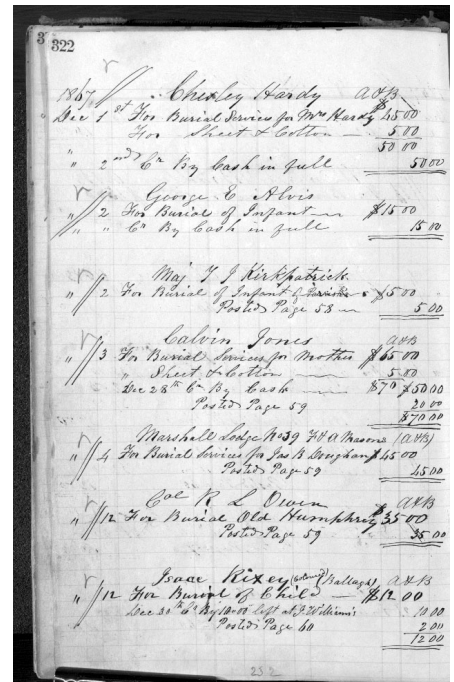 3 322
1867 Chesley Hardy A&B
Dec 1st For Burial Services for Mrs Hardy $45 00
For Sheet & Cotton — 5 00
50 00
" 2nd Cr By Cash in full 50 00
George E Alvis
" 2 For Burial of Infant $15 00
" " Cr By Cash in full 15 00
Maj T J Kirkpatrick
" 2 For Burial of Infant $5 00
Posted Page 58 5 00
Calvin Jones A&B
" 3 For Burial Services for Mother $65 00
" Sheet & Cotton 5 00
Dec 28th Cr By Cash $70 $50 00
Posted Page 59 20 00
$70 00
Marshall Lodge No 39 F & A Masons (A&B)
" 4 For Burial Services for Jas B Doughan $45 00
Posted Page 59 45 00
Col R L Owen A&B
" 12 For Burial Old Humphrey $35 00
Posted Page 59 35 00
Isaac Rixey (Colored) (Ballagh) A&B
" 12 For Burial of Child — $12 00
Dec 30th Cr By 10.00 left at J. Williams 10 00
Posted Page 60 2 00
12 00
252